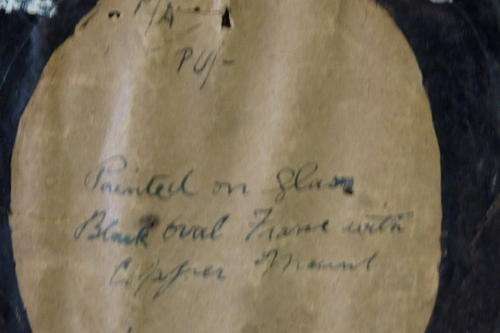 PU/-
Painted on Glass
Black Oval Frame with
Copper Mount